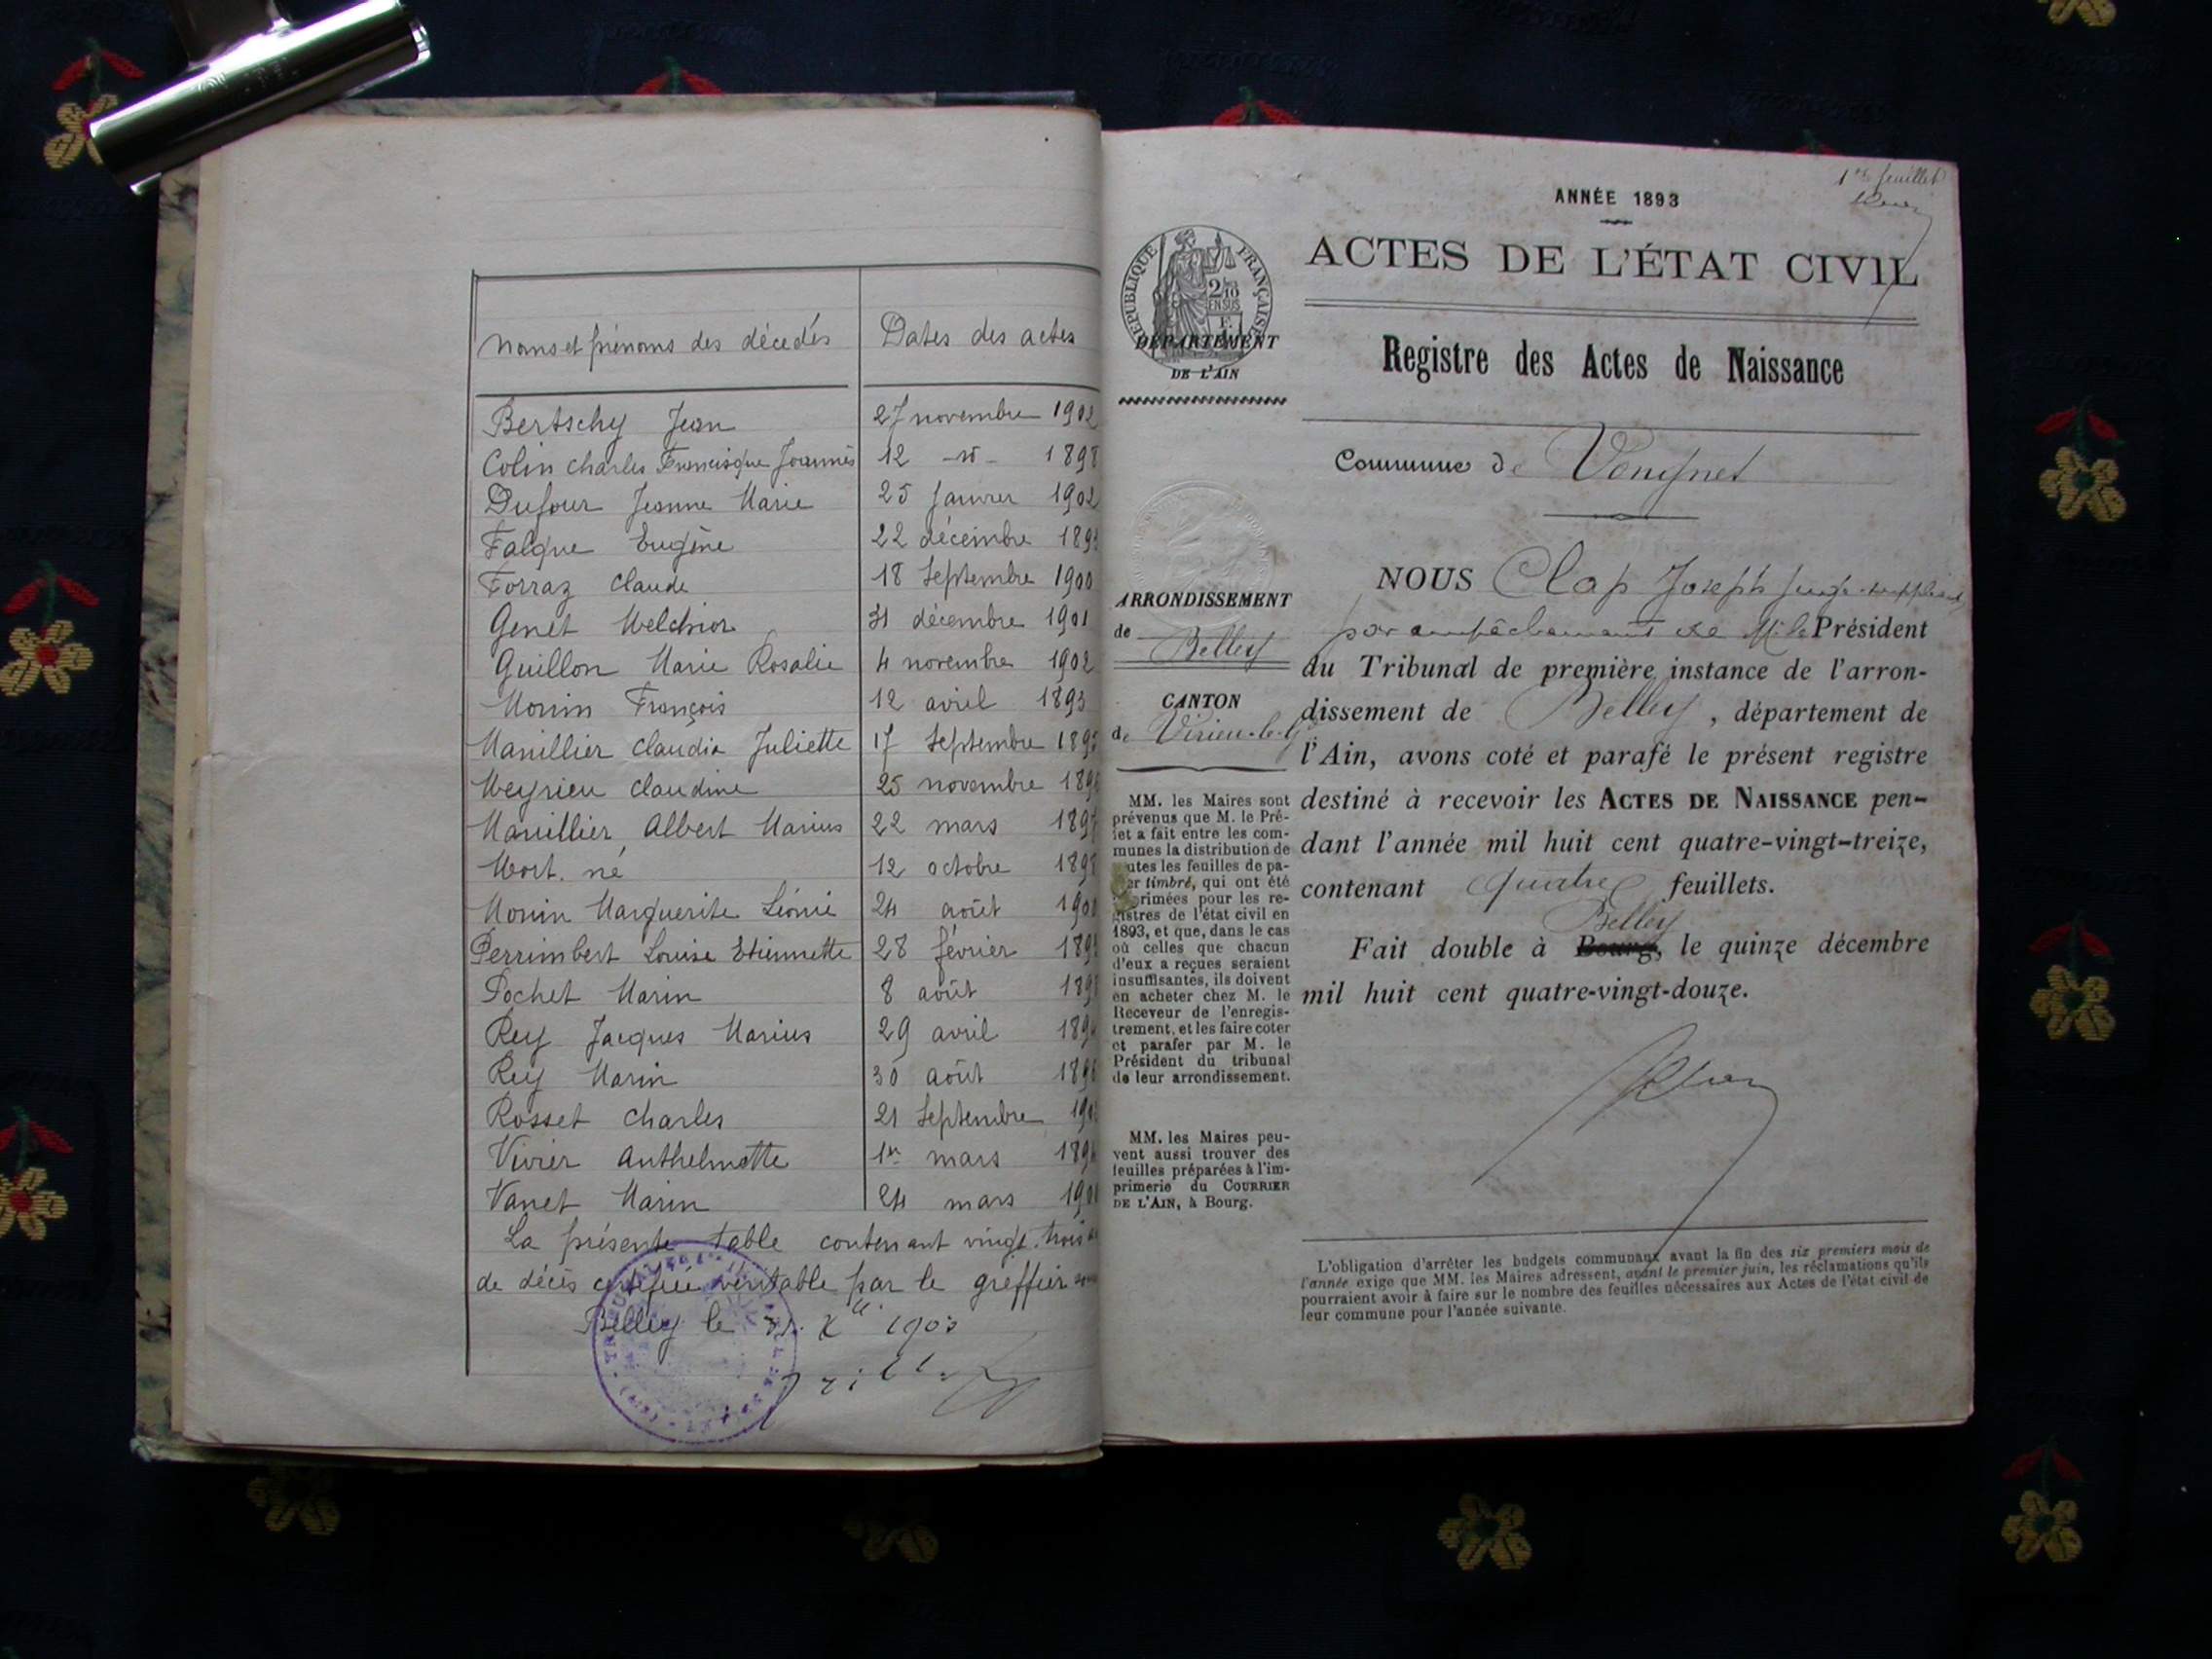 Noms et prénoms des décédés
Dates des actes
Bertschy Jean 27 novembre 1902
Colin Charles Francisque Joannès 12 -d°- 1898
Dufour Jeanne Marie 25 Janvier 1902
Falque Eugène 22 décembre 189
Forraz Claude 18 Septembre 1900
Genet Melchior 31 décembre 1901
Guillon Marie Rosalie 4 novembre 1902
Monin François 12 avril 1893
Manillier Claudia Juliette 17 Septembre 189
Meyrieu Claudine 25 novembre 189
Manillier Albert Marius 22 mars 1897
Mort. né 12 octobre 189
Monin Marguerite Léonie 24 août 190
Perrimbert Louise Etiennette 28 février 189
Pochet Marin 8 août 189
Rey Jacques Marius 29 avril 189
Rey Marin 30 août 189
Rosset Charles 21 Septembre 190
Vivier Anthelmette 1er mars 189
Vanet Marin 24 mars 190
La présente table contenant vingt-trois
de décès certifiée véritable par le greffier
Belley le 31. Xbre 1903
1er feuillet
ANNÉE 1893
ACTES DE L'ÉTAT CIVIL
RÉPUBLIQUE FRANÇAISE
2/10
EN SUS
DÉPARTEMENT
DE L'AIN
Registre des Actes de Naissance
Commune de Vongnes
ARRONDISSEMENT
de Belley
CANTON
de Virieu-le-Gd
MM. les Maires sont
prévenus que M. le Pré-
fet a fait entre les com-
munes la distribution de
toutes les feuilles de pa-
pier timbré, qui ont été
imprimées pour les re-
gistres de l'état civil en
1893, et que, dans le cas
où celles que chacun
d'eux a reçues seraient
insuffisantes, ils doivent
en acheter chez M. le
Receveur de l'enregis-
trement, et les faire coter
et parafer par M. le
Président du tribunal
de leur arrondissement.
MM. les Maires peu-
vent aussi trouver des
feuilles préparées à l'im-
primerie du COURRIER
DE L'AIN, à Bourg.
NOUS Clap Joseph Juge suppléant
par empêchement de M. le Président
du Tribunal de première instance de l'arron-
dissement de Belley, département de
l'Ain, avons coté et parafé le présent registre
destiné à recevoir les ACTES DE NAISSANCE pen-
dant l'année mil huit cent quatre-vingt-treize,
contenant quatre feuillets.
Belley
Fait double à Bourg, le quinze décembre
mil huit cent quatre-vingt-douze.
L'obligation d'arrêter les budgets communaux avant la fin des six premiers mois de
l'année exige que MM. les Maires adressent, avant le premier juin, les réclamations qu'ils
pourraient avoir à faire sur le nombre des feuilles nécessaires aux Actes de l'état civil de
leur commune pour l'année suivante.